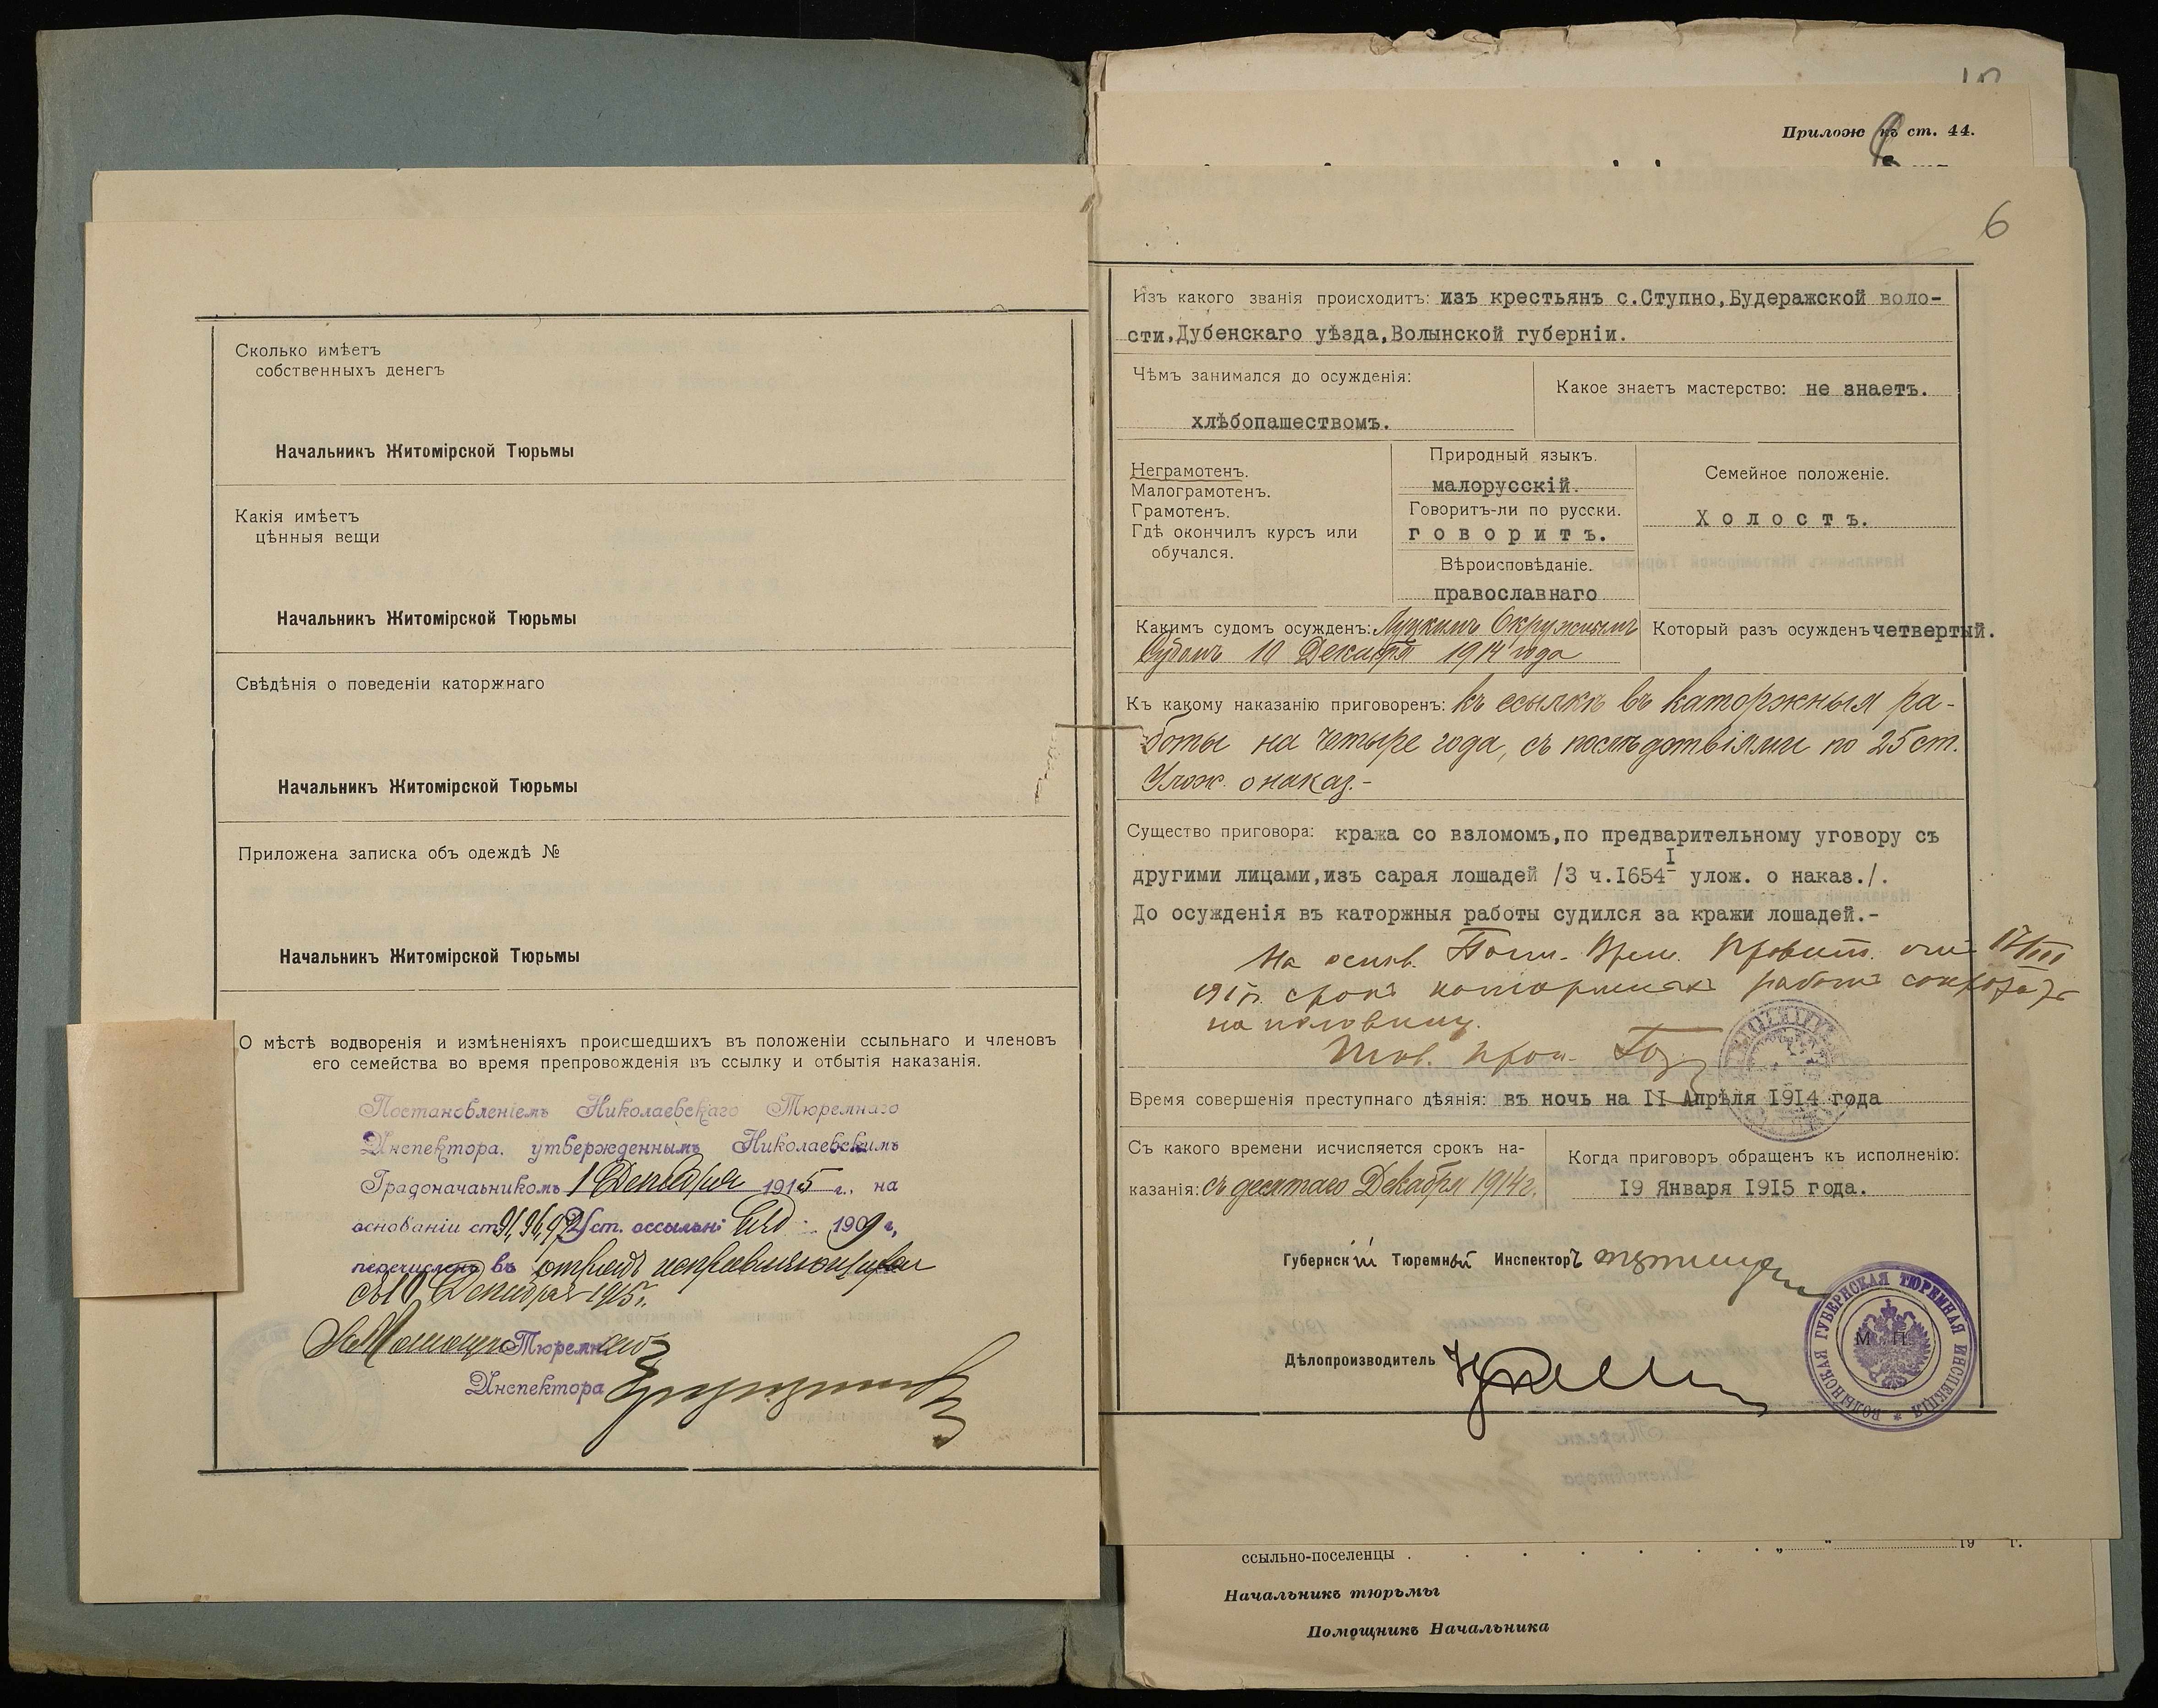 Сколько имѣетъ
собственныхъ денегъ
Начальникъ Житомірской Тюрьмы
Какія имѣетъ
цѣнныя вещи
Начальникъ Житомірской Тюрьмы
Свѣдѣнія о поведеніи каторжнаго
Начальникъ Житомірской Тюрьмы
Приложена записка объ одеждѣ №
Начальникъ Житомірской Тюрьмы
О мѣстѣ водворенія и измѣненіяхъ происшедшихъ въ положеніи ссыльнаго и членовъ
его семейства во время препровожденія въ ссылку и отбытія наказанія.
Постановленіемъ Николаевскаго Тюремнаго
Инспектора, утвержденнымъ Николаевскимъ
Градоначальникомъ 1 Декабря 1915 г., на
основаніи ст. 91, 96, 97 Уст. о ссыльн. изд. 1909 г.,
перечисленъ въ отрядъ исправляющихся
съ 10 Декабря 1915 г.
Тюремнаго
Инспектора
Прилож къ ст. 44.
6
Изъ какого званія происходитъ: изъ крестьянъ с.Ступно,Будеражской воло-
сти,Дубенскаго уѣзда,Волынской губерніи.
Чѣмъ занимался до осужденія:
хлѣбопашествомъ.
Какое знаетъ мастерство: не знаетъ.
Неграмотенъ.
Малограмотенъ.
Грамотенъ.
Гдѣ окончилъ курсъ или
обучался.
Природный языкъ.
малорусскій.
Говоритъ-ли по русски.
говоритъ.
Вѣроисповѣданіе.
православнаго
Семейное положеніе.
Холостъ.
Какимъ судомъ осужденъ: Луцкимъ Окружнымъ
Судомъ 10 Декабря 1914 года
Который разъ осужденъ четвертый.
Къ какому наказанію приговоренъ: къ ссылкѣ въ каторжныя ра-
боты на четыре года, съ послѣдствіями по 25 ст.
Улож. о наказ.-
Существо приговора: кража со взломомъ,по предварительному уговору съ
другими лицами,изъ сарая лошадей /3 ч.1654-I улож. о наказ./.
До осужденія въ каторжныя работы судился за кражи лошадей.-
На основ. Пост. Врем. Правит. отъ 17/III
1917 г. срокъ каторжныхъ работъ сокращ.
на половину.
Тов. Прок.
Время совершенія преступнаго дѣянія: въ ночь на II Апрѣля 1914 года
Съ какого времени исчисляется срокъ на-
казанія: съ десятаго Декабря 1914 г.
Когда приговоръ обращенъ къ исполненію:
19 Января 1915 года.
Губернскій Тюремный Инспекторъ
Дѣлопроизводитель
М. П.
ВОЛЫНСКАЯ ГУБЕРНСКАЯ ТЮРЕМНАЯ ИНСПЕКЦІЯ
ссыльно-поселенцы . . . . . . . „ " 19 г.
Начальникъ тюрьмы
Помощникъ Начальника